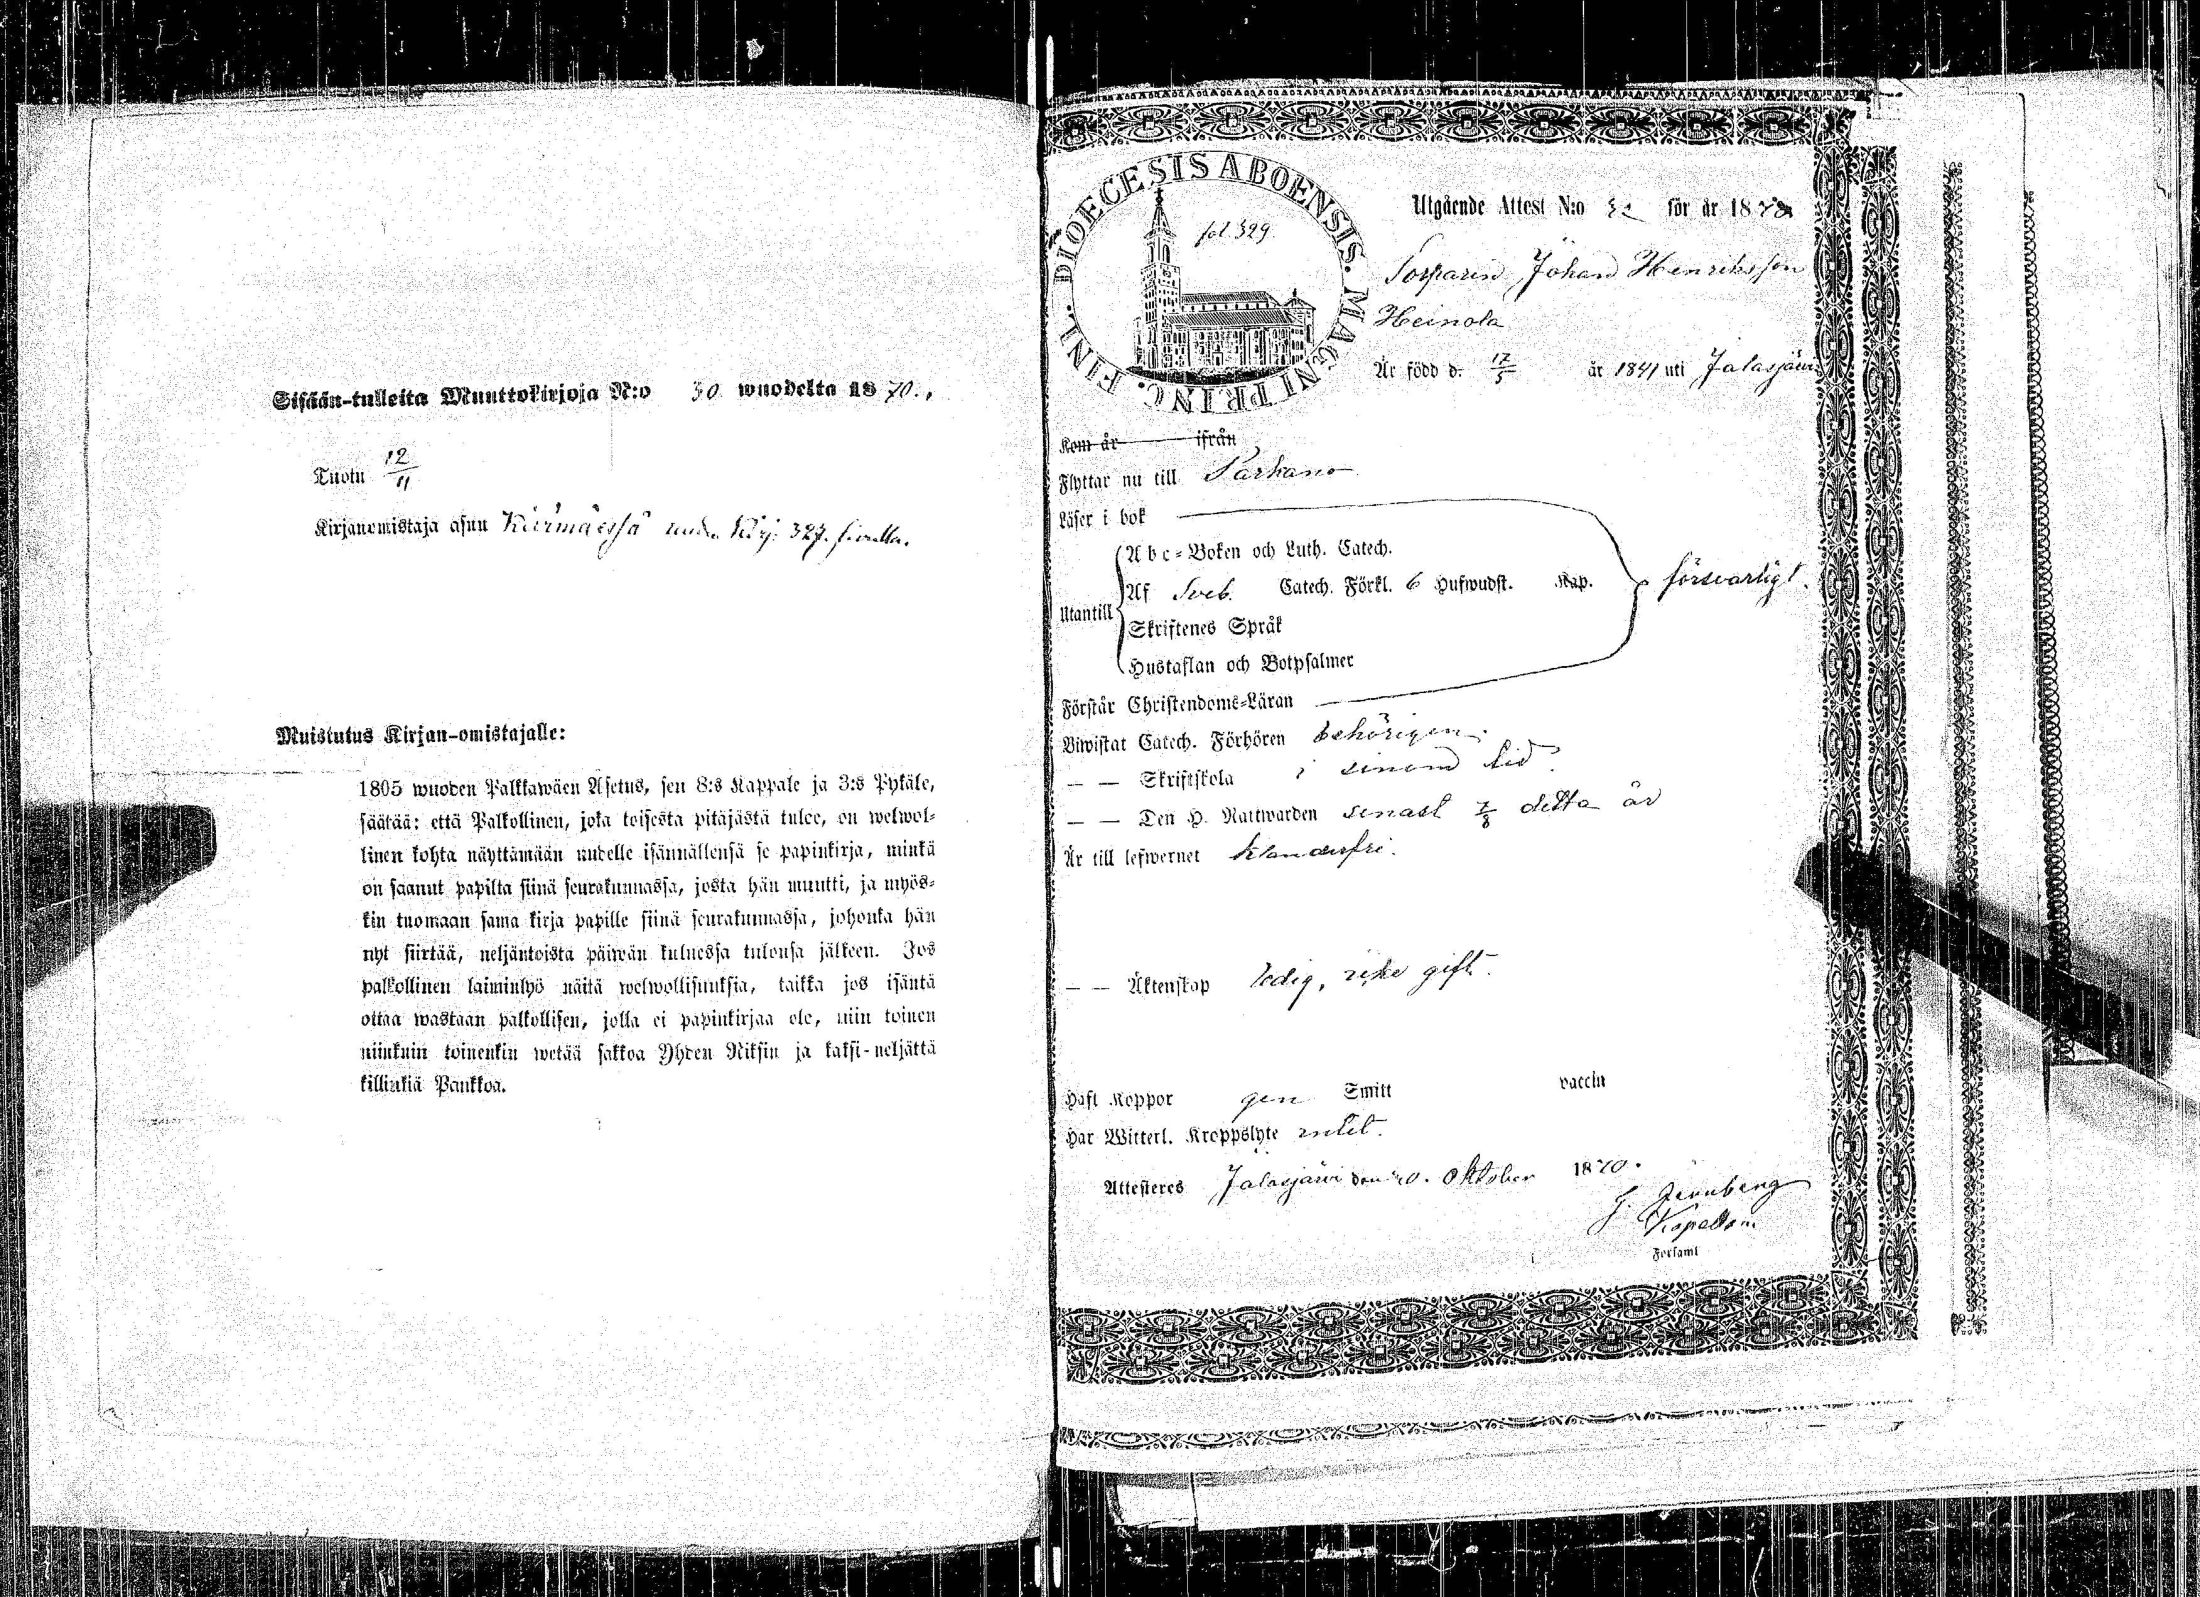 Sisään-tulleita Muuttokirjoja N:o 30 wuodelta 1870.
Tuotu 12/11
Kirjanomistaja asuu Kirj. 327. sivulla.
Muistutus Kirjan-omistajalle:
1805 wuoden Palkkawäen Asetus, sen 8:s Kappale ja 3:s Pykäle,
säätää: että Palkollinen, joka toisesta pitäjästä tulee, on welwol-
linen kohta näyttämään uudelle isännällensä se papinkirja, minkä
on saanut papilta siinä seurakunnassa, josta hän muutti, ja myös-
kin tuomaan sama kirja papille siinä seurakunnassa, johonka hän
nyt siirtää, neljäntoista päiwän kuluessa tulonsa jälkeen. Jos
palkollinen laiminlyö näitä welwollisuuksia, taikka jos isäntä
ottaa wastaan palkollisen, jolla ei papinkirjaa ole, niin toinen
niinkuin toinenkin wetää sakkoa Yhden Riksin ja kaksi-neljättä
killinkiä Pankkoa.
DIOECESIS ABOENSIS. MAGNI PRINC. FINL.
fol. 329.
Utgående Attest N:o för år 1870
Johan Henriksson
Heinola
Är född d. 17/5 år 1841 uti Jalasjärvi
Kom år ifrån
Flyttar nu till Parkano
Läser i bok
Abc-Boken och Luth. Catech.
Utantill Af Sveb. Catech. Förkl. 6 Hufwudst. Kap. försvarligt.
Skriftenes Språk
Hustaflan och Botpsalmer
Förstår Christendoms-Läran
Biwistat Catech. Förhören behörigen.
— — Skriftskola i sinom tid.
— — Den H. Nattwarden senast 7/8 detta år
Är till lefwernet klanderfri.
— — Äktenskap ledig, icke gift.
Haft Koppor gen Smitt vaccin
Har Witterl. Kroppslyte intet.
Attesteres Jalasjärvi den Oktober 1870.
Kapellan
Forsaml